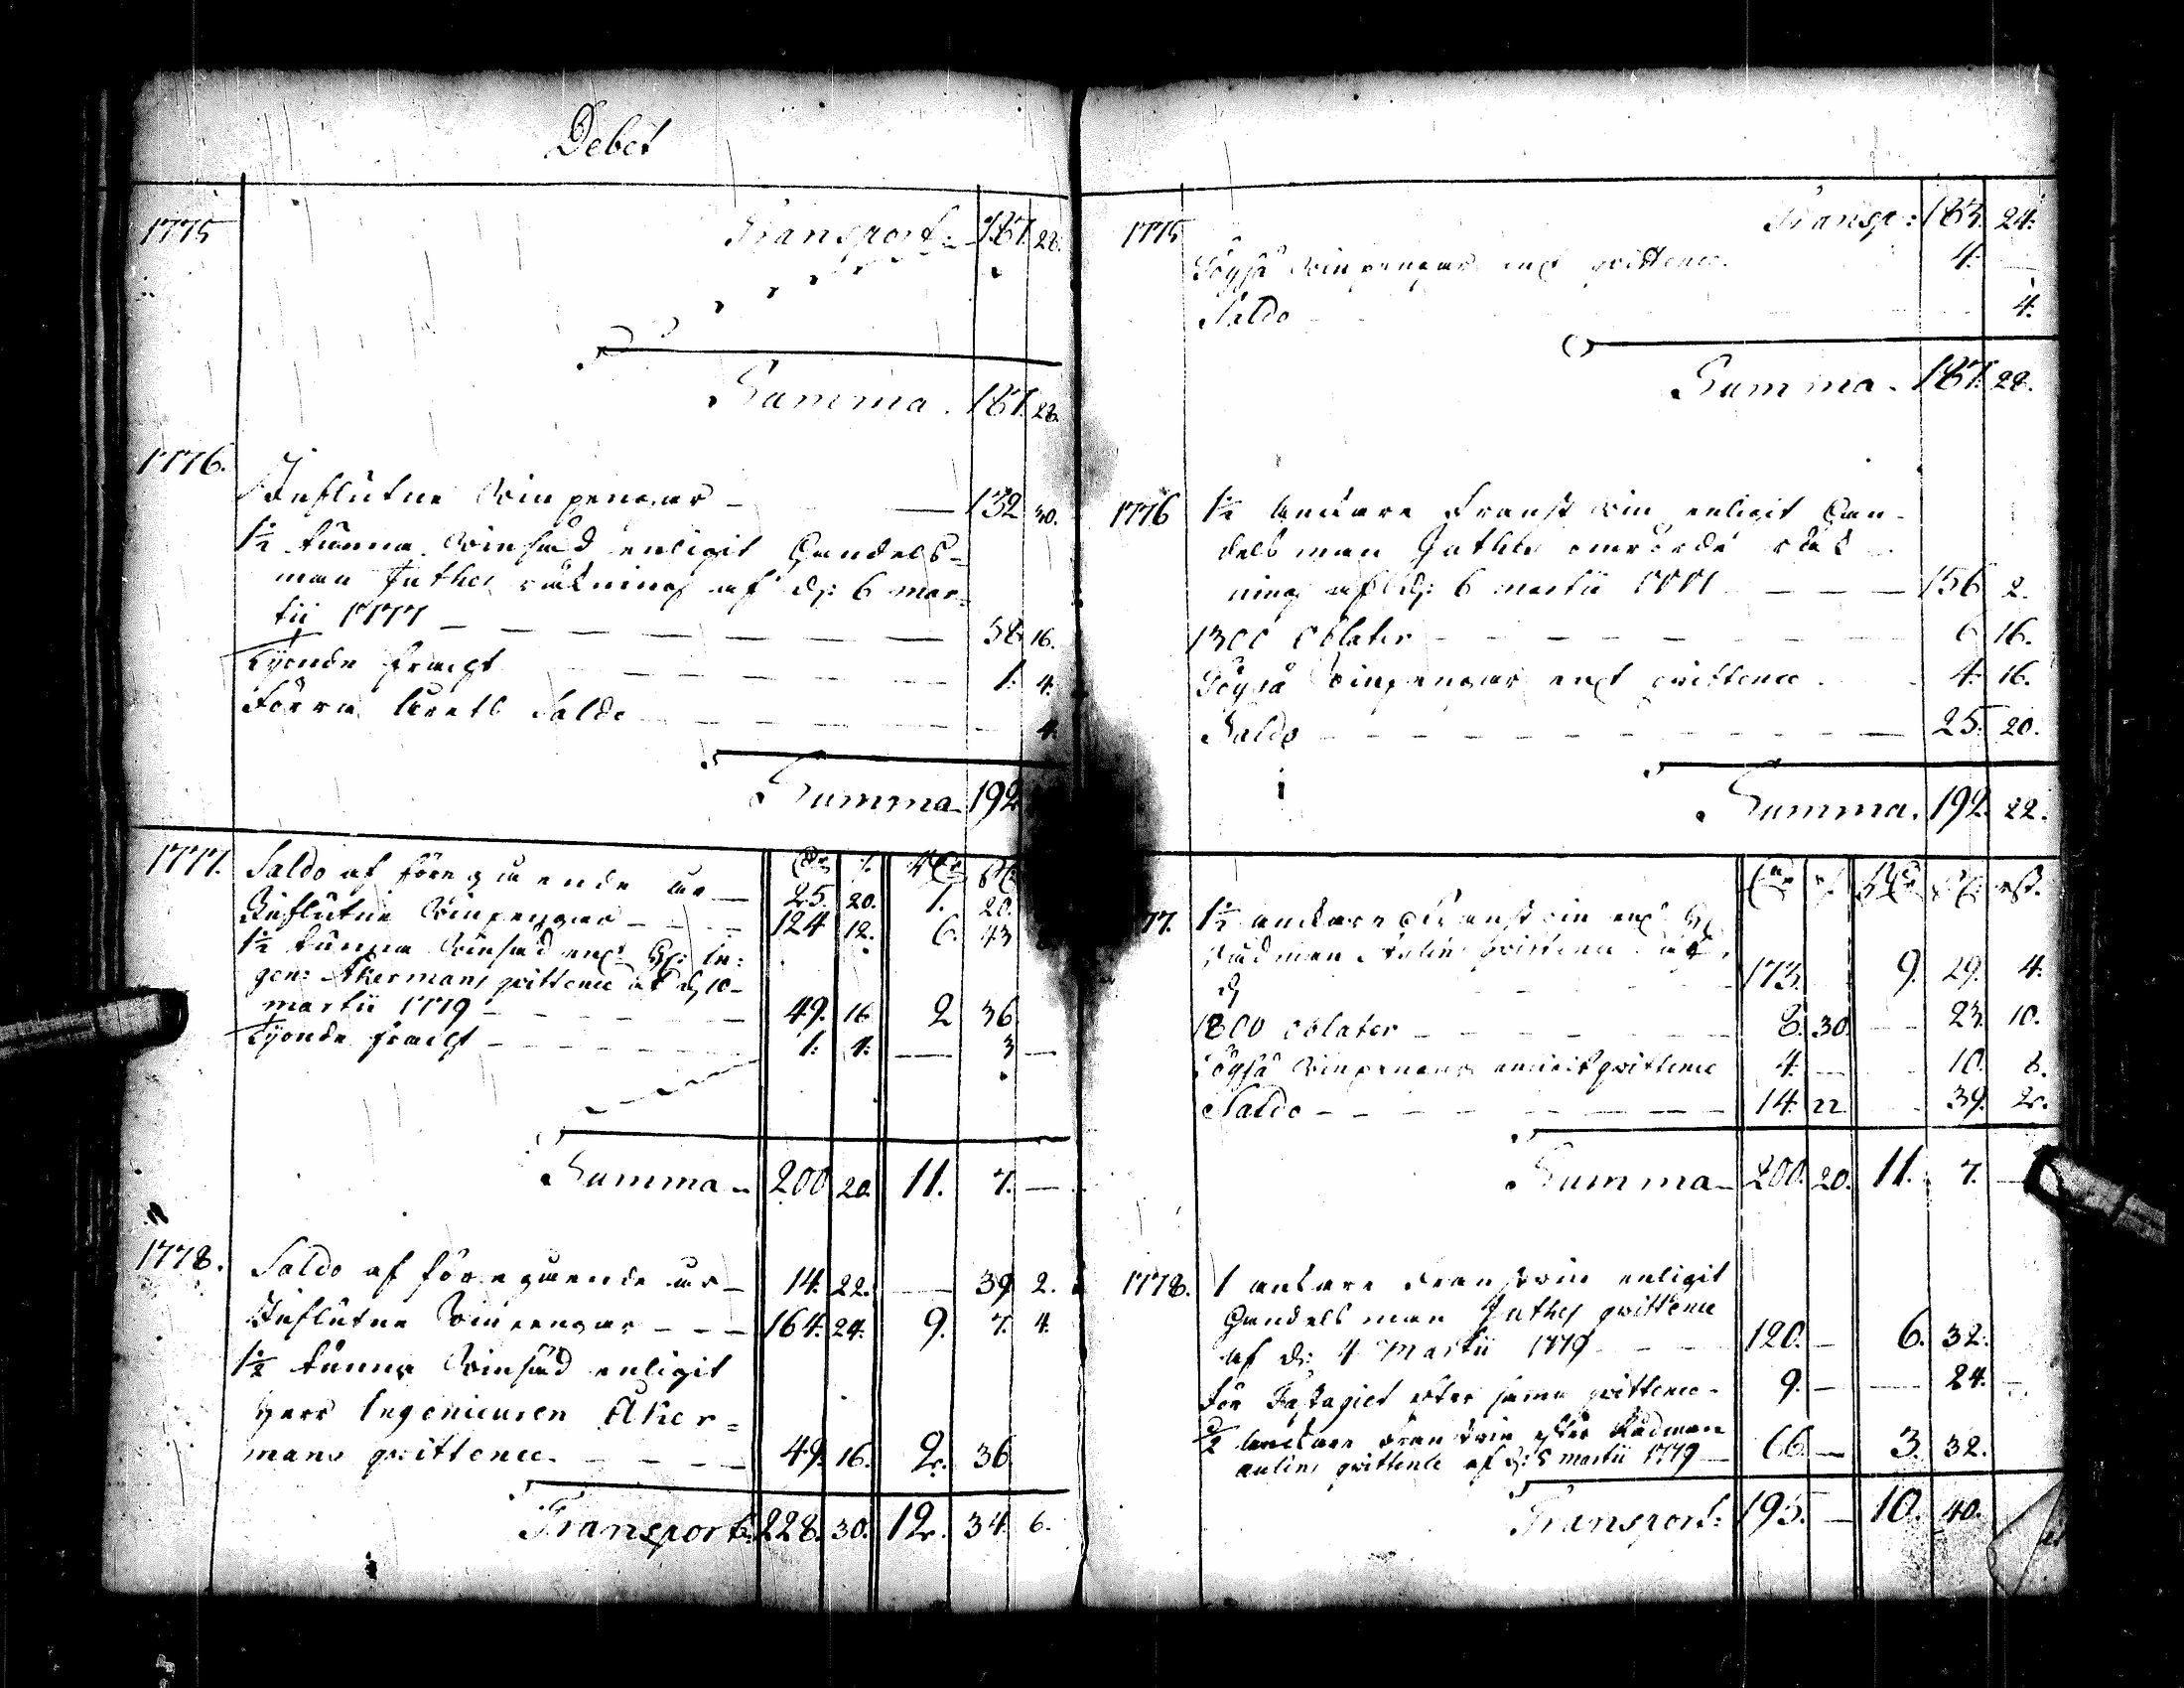 Debet
1775 Transport: 187. 28.
Summa. 187. 28.
1776.
Influtne Winpengar 132 30.
1½ tunna Winsäd enligit Handels-
man Juthes räkning af d: 6 mar-
tii 1777 58. 16.
Tyonde fracht 1. 4.
Förra Årets Saldo 4.
Summa 192
1777. Saldo af föregående år 25. 20. 1. 20.
Influtne Winpengar 124 12. 6. 43
1½ tunna Winsäd enl. H: In-
gen: Åkermans qvittence af d. 10
martii 1779 49. 16 2 36
Tyonde fracht 1. 4. 3
Summa 200 20. 11. 7.
1778. Saldo af föregående år 14. 22. 39 2.
Influtne Winpengar 164. 24. 9. 7. 4.
1½ tunna Winsäd enligit
Herr Ingenieuren Åker-
mans qvittence 49. 16. 2. 36
Transport: 228. 30. 12. 34. 6.
1775 Transp: 183. 24.
Högså Winpengar enl qvittence. 4.
Saldo 4.
Summa. 187. 28.
1776 1½ Anckare Franskt win enligit Han-
dels man Juthes omrörde räk-
ning af d: 6 martii 1777 156 2.
1300 oblater 6 16.
Högså Winpengar enl qvittence 4. 16.
Saldo 25. 20.
Summa. 192. 22.
77. 1½ anckare Franskt win enl H
Rådman Aulins qvittence af
d 173. 9. 29. 4.
1800 oblater 8. 30. 23. 10.
Högså Winpengar enligit qvittence 4. 10. 8.
Saldo 14. 22 39. 2.
Summa 200. 20. 11. 7.
1778. 1 ankare Franskt win enligit
Handels man Juthes qvittence
af d: 4 Martii 1779 120. 6. 32.
För Fastagiet efter samma qvittence 9. 24.
½ Anckare Franskt win efter Rådman
Aulins qvittence af d: 8 martii 1779 66. 3. 32.
Transport: 195. 10. 40.